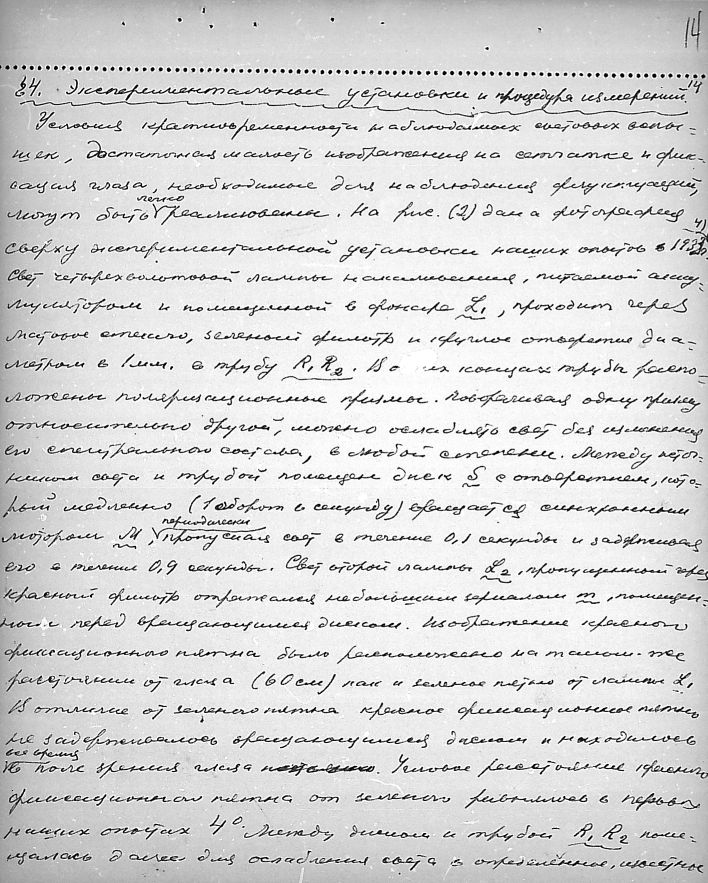 14
14
§4. Экспериментальные установки и процедура измерений
Условия кратковременности наблюдаемых световых вспы-
шек, достаточная малость изображения на сетчатке и фик-
сация глаза, необходимые для наблюдения флуктуаций,
легко
могут быть реализованы. На рис. (2) дана фотография
4)
сверху экспериментальной установки наших опытов в
Свет четырехвольтовой лампы накаливания, питаемой акку-
мулятором и помещенной в фонаре L₁, проходит через
матовое стекло, зеленый фильтр и круглое отверстие диа-
метром в 1мм. в трубу R₁ R₂. В о их концах трубы распо-
ложены поляризационные призмы. Поворачивая одну призму
относительно другой, можно ослаблять свет без изменения
его спектрального состава, в любой степени. Между источ-
ником света и трубой помещен диск S с отверстием, кото-
рый медленно (1 оборот в секунду) вращается синхронным
периодически
мотором M, пропуская свет в течение 0,1 секунды и задерживая
его в течении 0,9 секунды. Свет второй лампы L₂, пропущенный через
красный фильтр отражался небольшим зеркалом m, помещен-
ным перед вращающимся диском. Изображение красного
фиксационного пятна было расположено на таком-же
расстоянии от глаза (60 см) как и зеленое пятно от лампы L₁
В отличие от зеленого пятна красное фиксационное пятно
не задерживалось вращающимся диском и находилось
все время
в поле зрения глаза постоянно. Угловое расстояние красного
фиксационного пятна от зеленого равнялось в первых
наших опытах 4°. Между диском и трубой R₁ R₂ поме-
щалась далее для ослабления света в определённое, известное